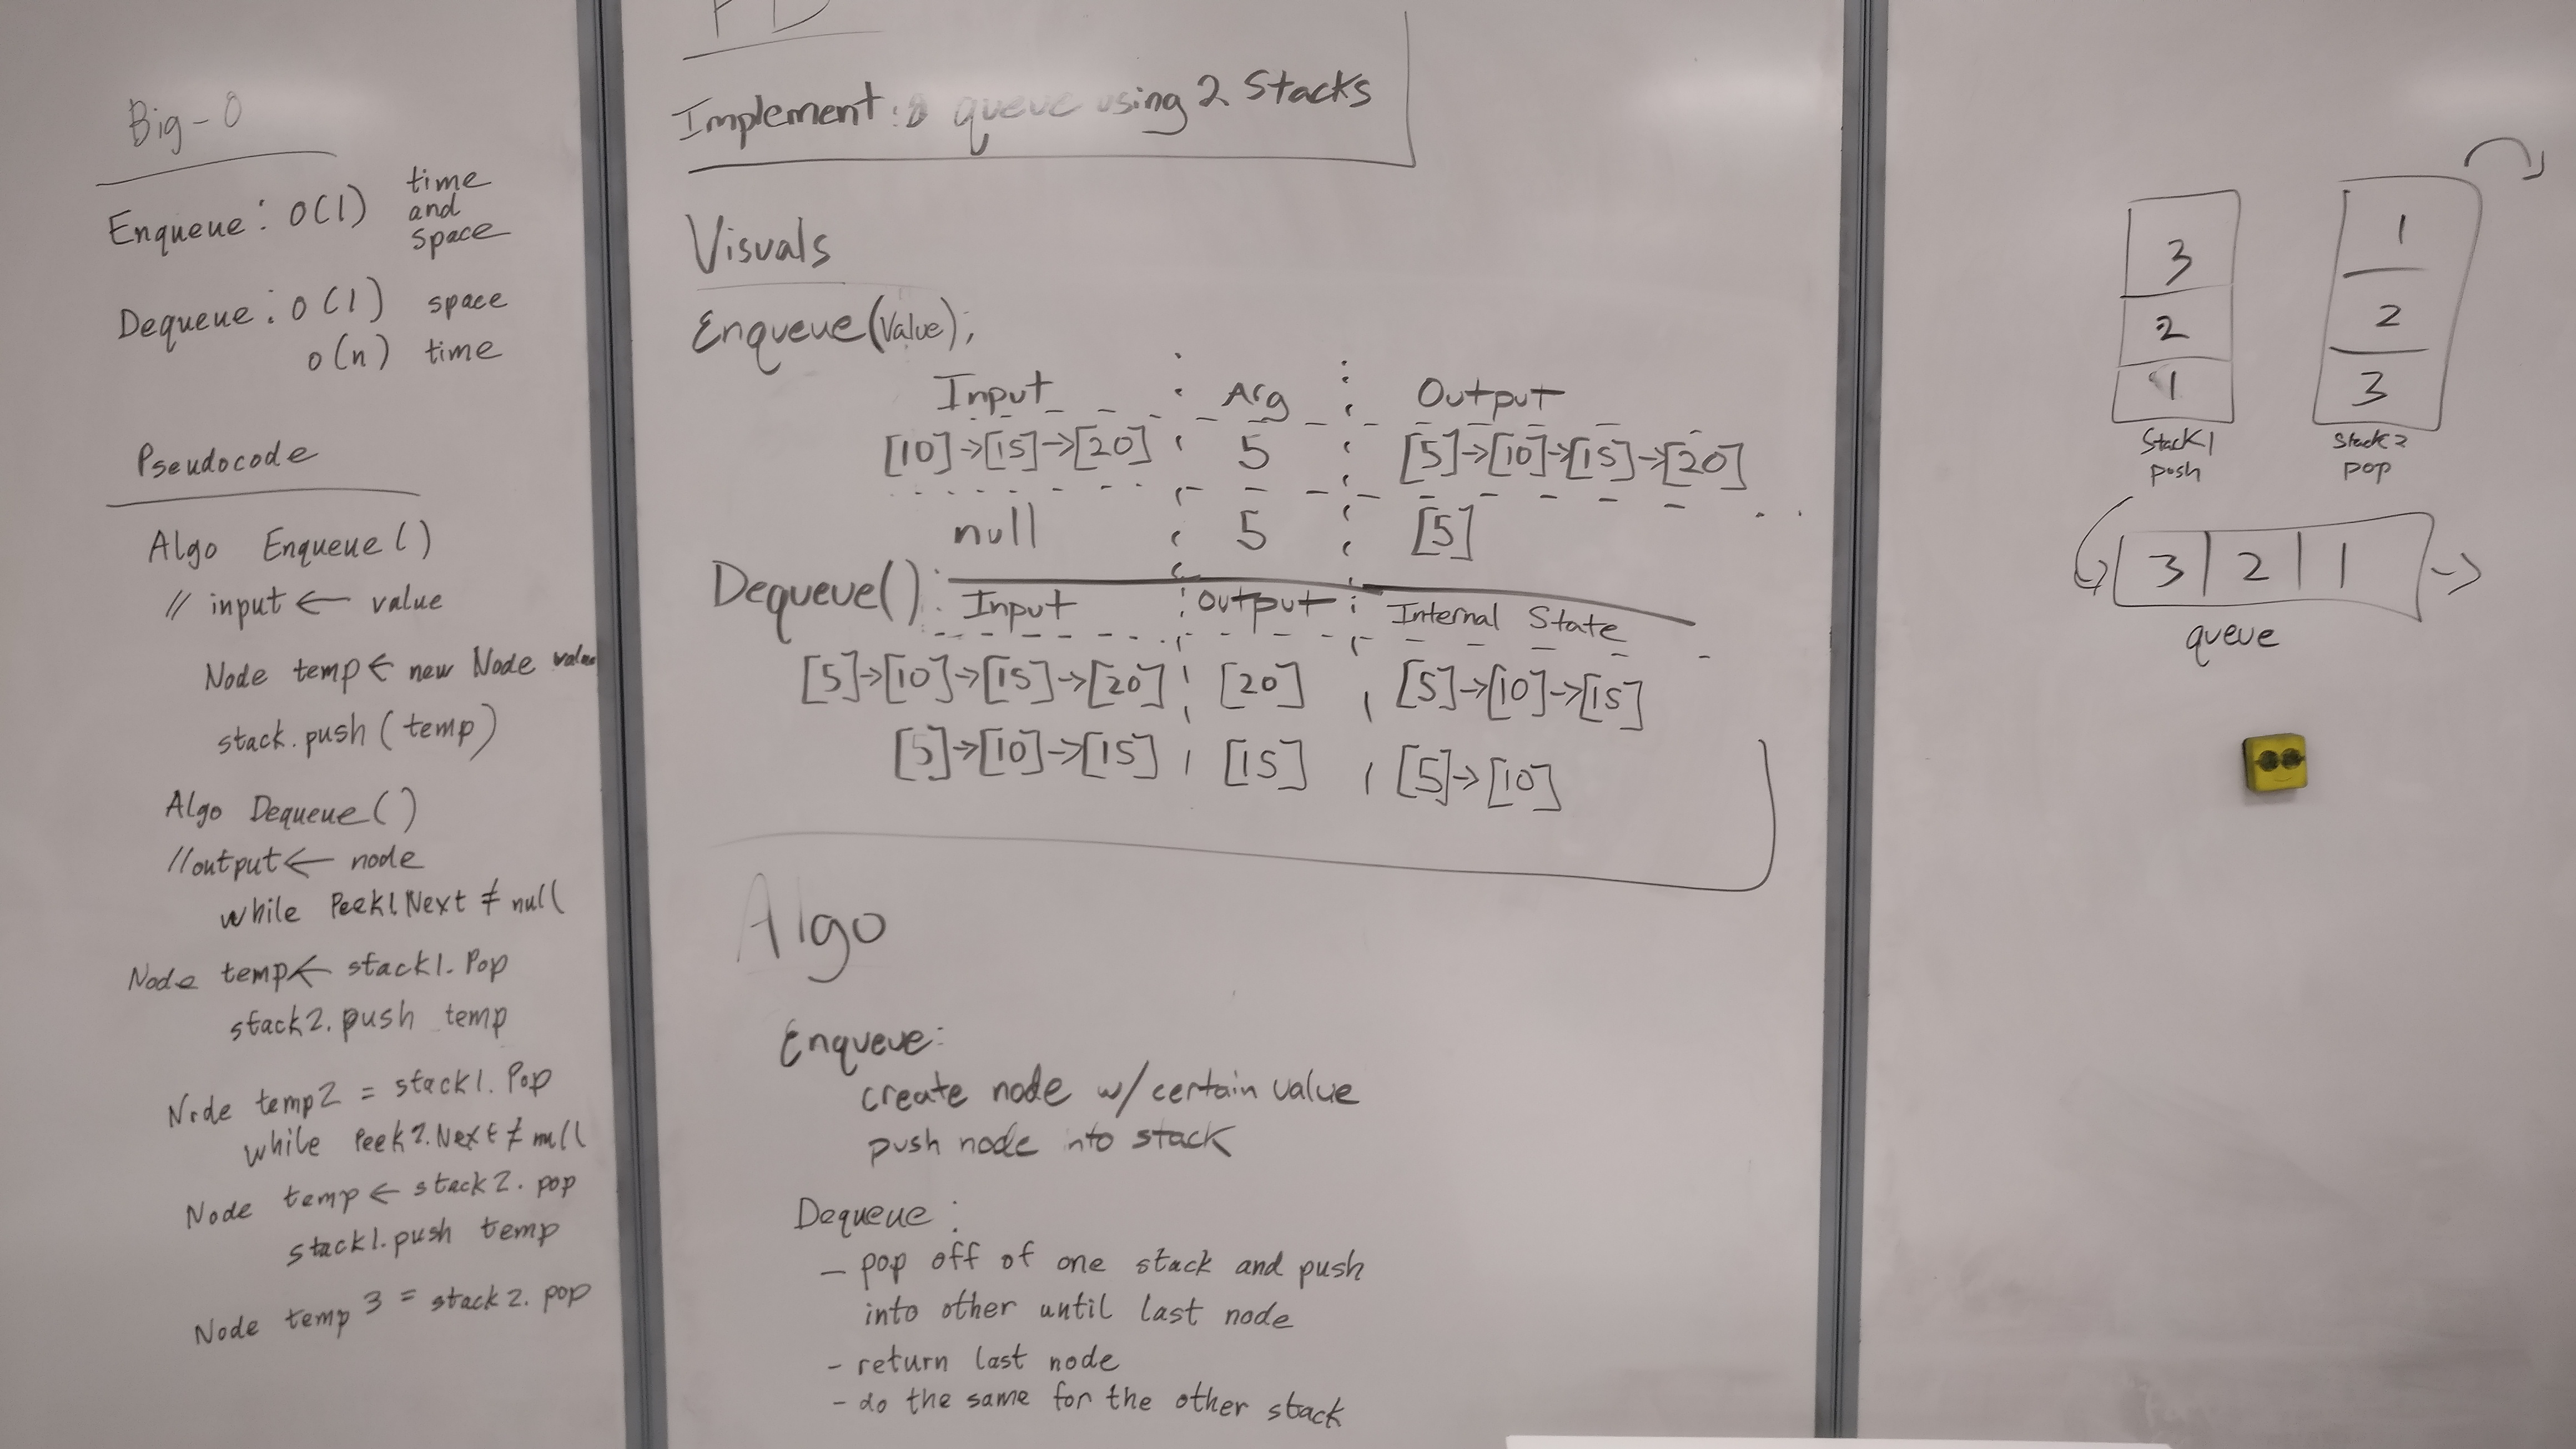 Big-O
Enqueue: O(1) time and space
Dequeue: O(1) space
O(n) time
Pseudocode
Algo Enqueue()
// input ← value
Node temp ← new Node value
stack.push(temp)
Algo Dequeue()
//output ← node
while Peek1.Next ≠ null
Node temp ← stack1.Pop
stack2.push temp
Node temp2 = stack1.Pop
while Peek2.Next ≠ null
Node temp ← stack2.pop
stack1.push temp
Node temp3 = stack2.pop
Implement: queue using 2 Stacks
Visuals
Enqueue(Value);
Input Arg Output
[10]->[15]->[20] 5 [5]->[10]->[15]->[20]
null 5 [5]
Dequeue(): Input Output Internal State
[5]->[10]->[15]->[20] [20] [5]->[10]->[15]
[5]->[10]->[15] [15] [5]->[10]
Algo
Enqueue:
create node w/ certain value
push node into stack
Dequeue:
- pop off of one stack and push
into other until last node
- return last node
- do the same for the other stack
3 1
2 2
1 3
Stack1 Stack2
push pop
3 | 2 | 1 ->
queue